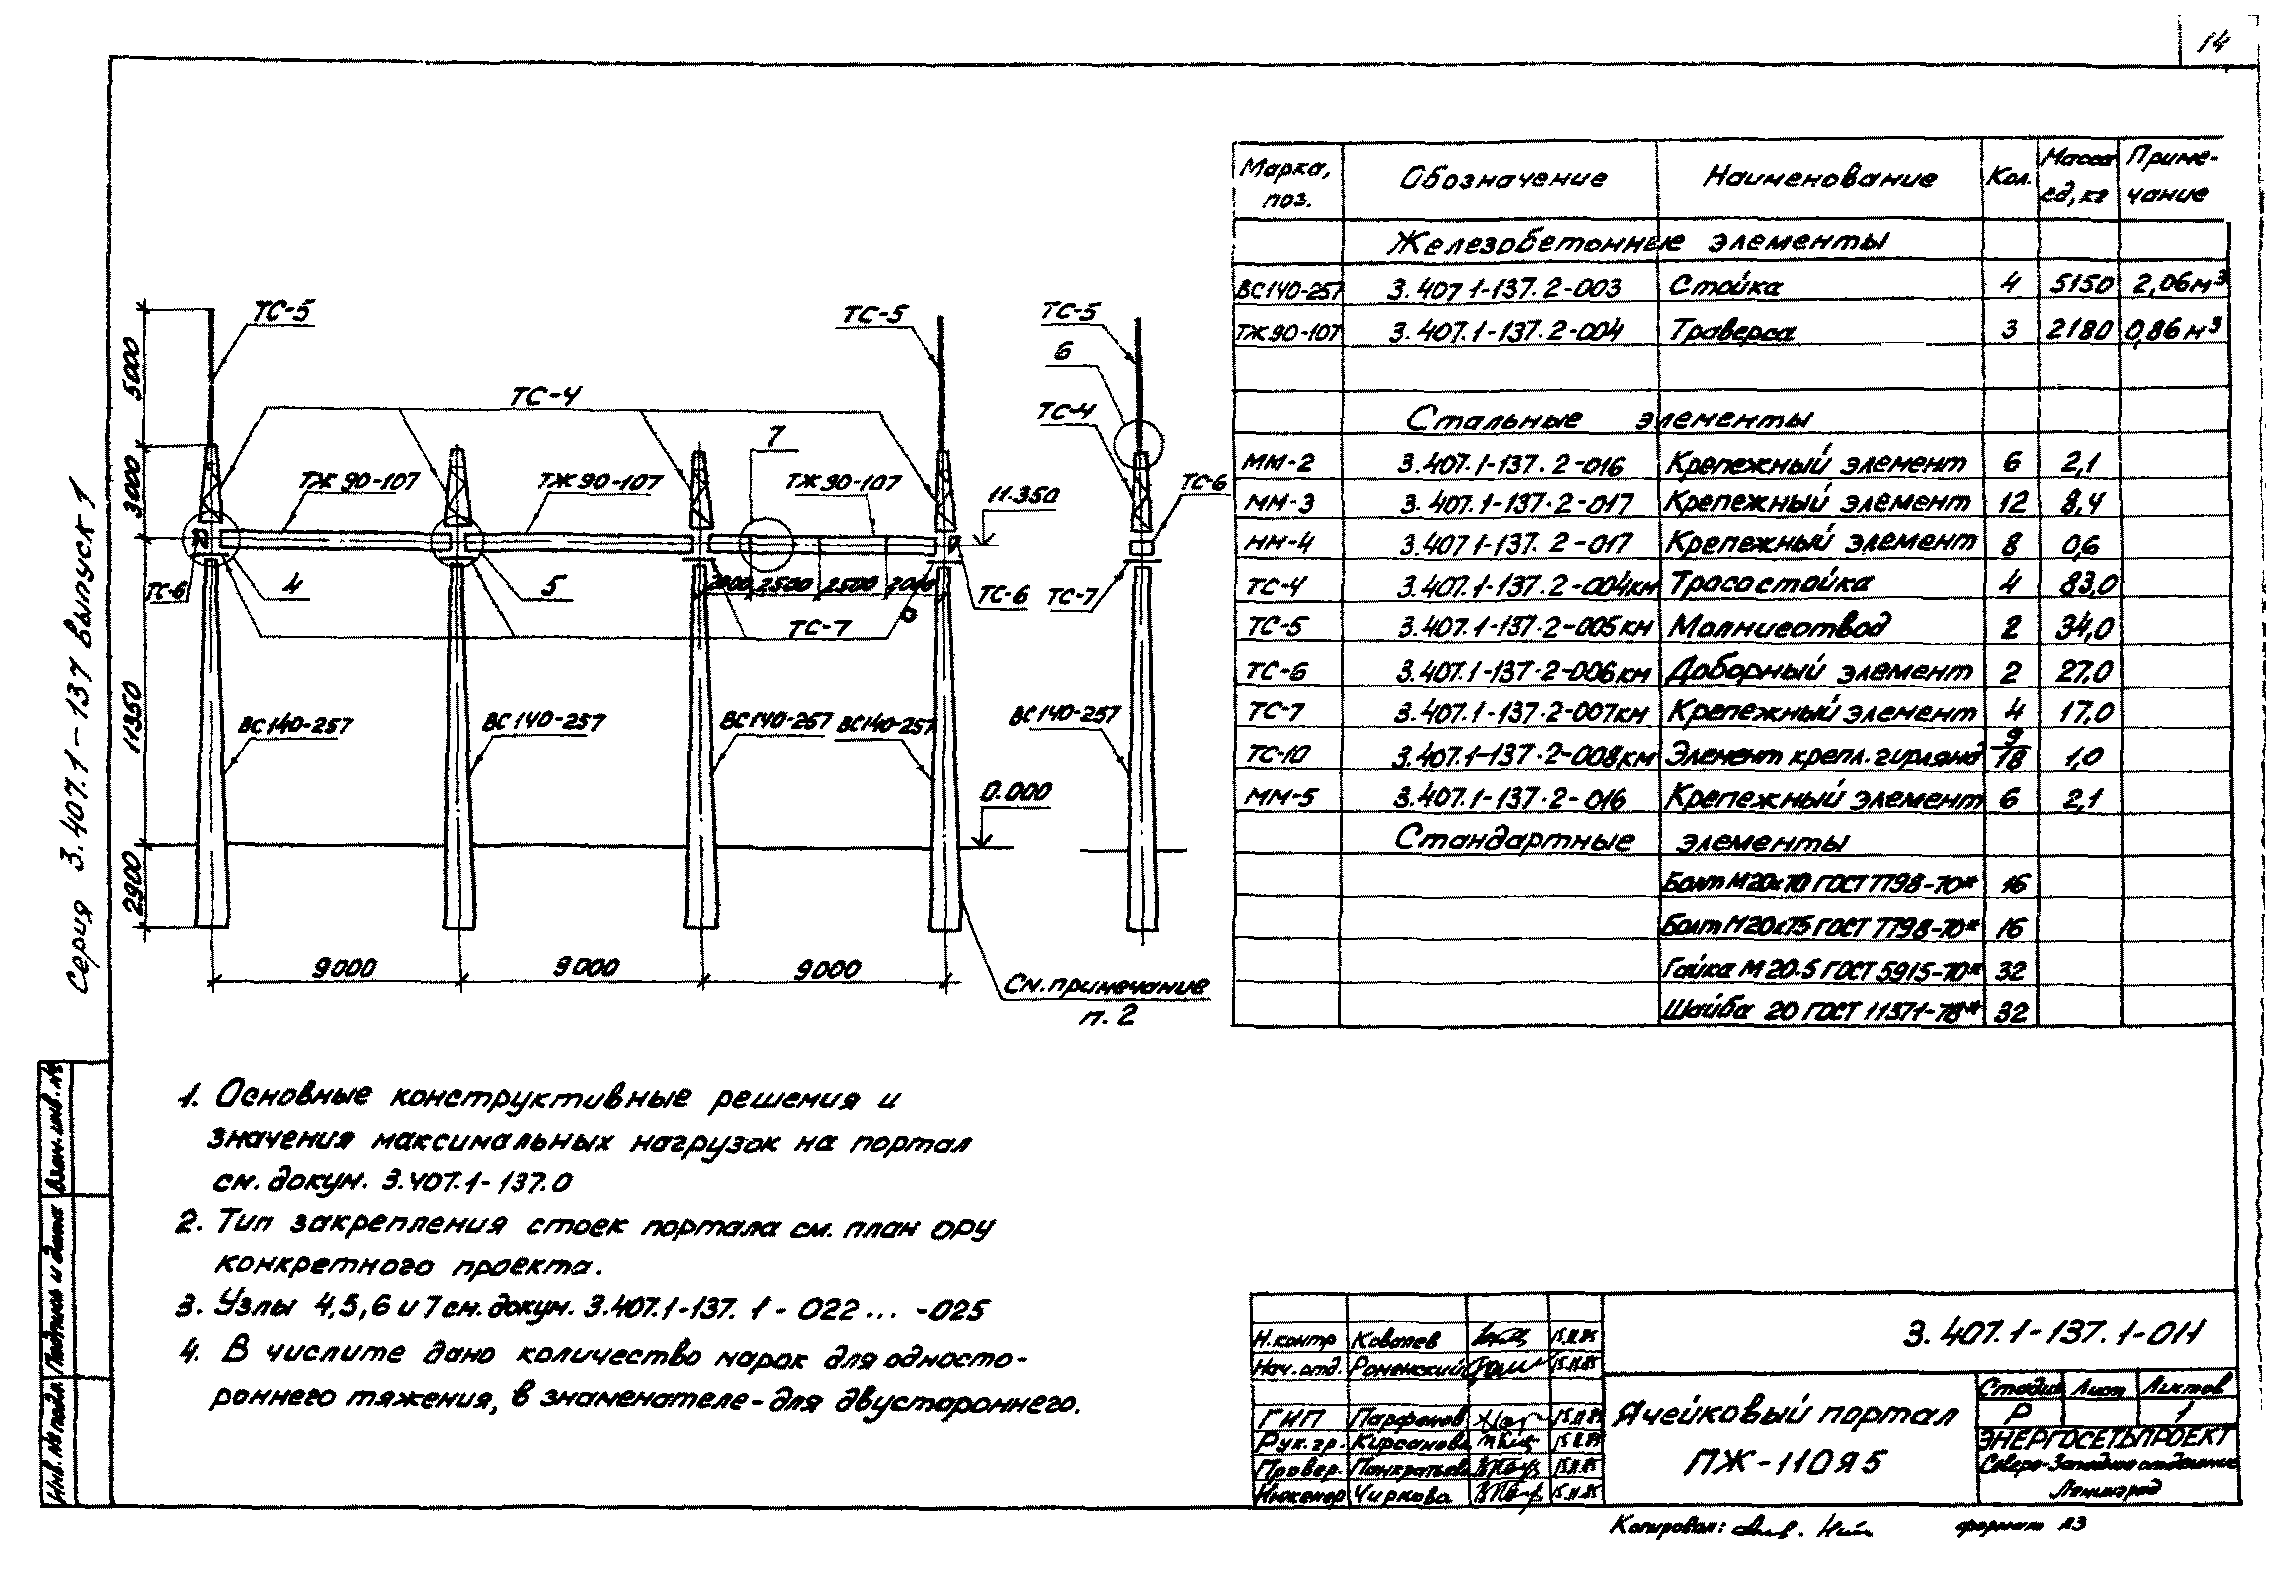 14
Серия 3.407.1-137 выпуск 1
ТС-5
ТС-5
ТС-5
6
ТС-4
ТС-4
7
ТЖ 90-107
ТЖ 90-107
ТЖ 90-107
11.350
ТС-6
5000
3000
11350
2900
ТС-6
4
5
2000
2500
2500
2000
ТС-6
ТС-7
ТС-7
ВС140-257
ВС140-257
ВС140-257
ВС140-257
ВС140-257
0.000
9000
9000
9000
См. примечание
п. 2
Марка, поз. Обозначение Наименование Кол. Масса ед, кг Примечание
Железобетонные элементы
ВС140-257 3.407 1-137.2-003 Стойка 4 5150 2,06м³
ТЖ90-107 3.407.1-137.2-004 Траверса 3 2180 0,86м³
Стальные элементы
ММ-2 3.407.1-137.2-016 Крепежный элемент 6 2,1
ММ-3 3.407.1-137.2-017 Крепежный элемент 12 8,4
ММ-4 3.407 1-137.2-017 Крепежный элемент 8 0,6
ТС-4 3.407.1-137.2-004км Тросостойка 4 83,0
ТС-5 3.407.1-137.2-005км Молниеотвод 2 34,0
ТС-6 3.407.1-137.2-006км Доборный элемент 2 27,0
ТС-7 3.407.1-137.2-007км Крепежный элемент 4 17,0
ТС-10 3.407.1-137.2-008км Элемент крепл. гирлянд 9/18 1,0
ММ-5 3.407.1-137.2-016 Крепежный элемент 6 2,1
Стандартные элементы
Болт М20х70 ГОСТ 7798-70* 16
Болт М20х75 ГОСТ 7798-70* 16
Гайка М20.5 ГОСТ 5915-70* 32
Шайба 20 ГОСТ 11371-78* 32
1. Основные конструктивные решения и
значения максимальных нагрузок на портал
см. докум. 3.407.1-137.0
2. Тип закрепления стоек портала см. план ОРУ
конкретного проекта.
3. Узлы 4,5,6 и 7 см. докум. 3.407.1-137. 1-022... -025
4. В числите дано количество марок для односто-
роннего тяжения, в знаменателе-для двустороннего.
Взам. инв. №
Подпись и дата
Инв. № подл.
Н.контр Ковалев 15.11.85
Нач. отд. Роменский 15.11.85
ГИП Парфенов 15.11.85
Рук. гр. Кирсанова 15.11.85
Провер. Панкратьева 15.11.85
Инженер Чиркова 15.11.85
3.407.1-137.1-011
Ячейковый портал
ПЖ-110Я5
Стадия Лист Листов
Р 1
ЭНЕРГОСЕТЬПРОЕКТ
Северо-Западное отделение
Ленинград
Копировал:
формат А3